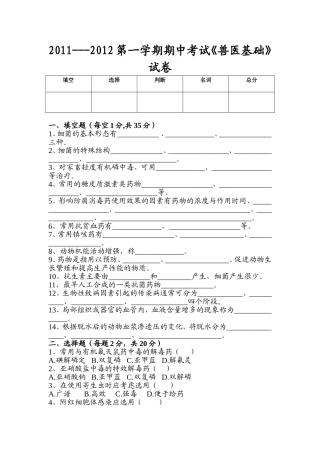 2011---2012第一学期期中考试《兽医基础》
试卷
填空 选择 判断 名词 总分
一、填空题（每空1分,共35分）
1、细菌的基本形态有________、________、________
三种。
2、细菌的特殊结构________、________、________、________。
3、对家畜轻度有机磷中毒，可用________、________
等治疗。
4、常用的糖皮质激素类药物________、________
________、________等。
5、影响防腐消毒药使用效果的因素有药物的浓度与作用时间、
________、________、________、________。
6、常用抗贫血药有________、________等。
7、常用镇咳药有________、________、________等。
8、动物机能活动增强，称________。
9、药物是指用以预防、________、________、促进动物生
长繁殖和提高生产性能的物质。
10、抗生素主要由________和________产生，细菌产生很少。
11、最早人工合成的一类抗菌药物________。
12、生物性致病因素引起的传染病通常可分________、
________、________、________四个阶段。
13、局部组织或器官的血管内________、________
________。
14、根据脱水后的动物血浆渗透压的变化，脱水分为________、
________、________。
二、选择题（每题2分，共20分）
1、常用与有机氟天鼠药中毒的解毒药（ ）
A.碘解磷定 B.双复磷 C.亚甲蓝 D.解氟灵
2、亚硝酸盐中毒的特效解毒药（ ）
A.亚硝酸钠 B.双复磷 C.亚甲蓝 D.亚硒酸钠
3、在使用寄生虫时应选用（ ）
A.广谱 B.高效 C.强毒 D.便于给药
4、附红细胞体感染应选用（ ）